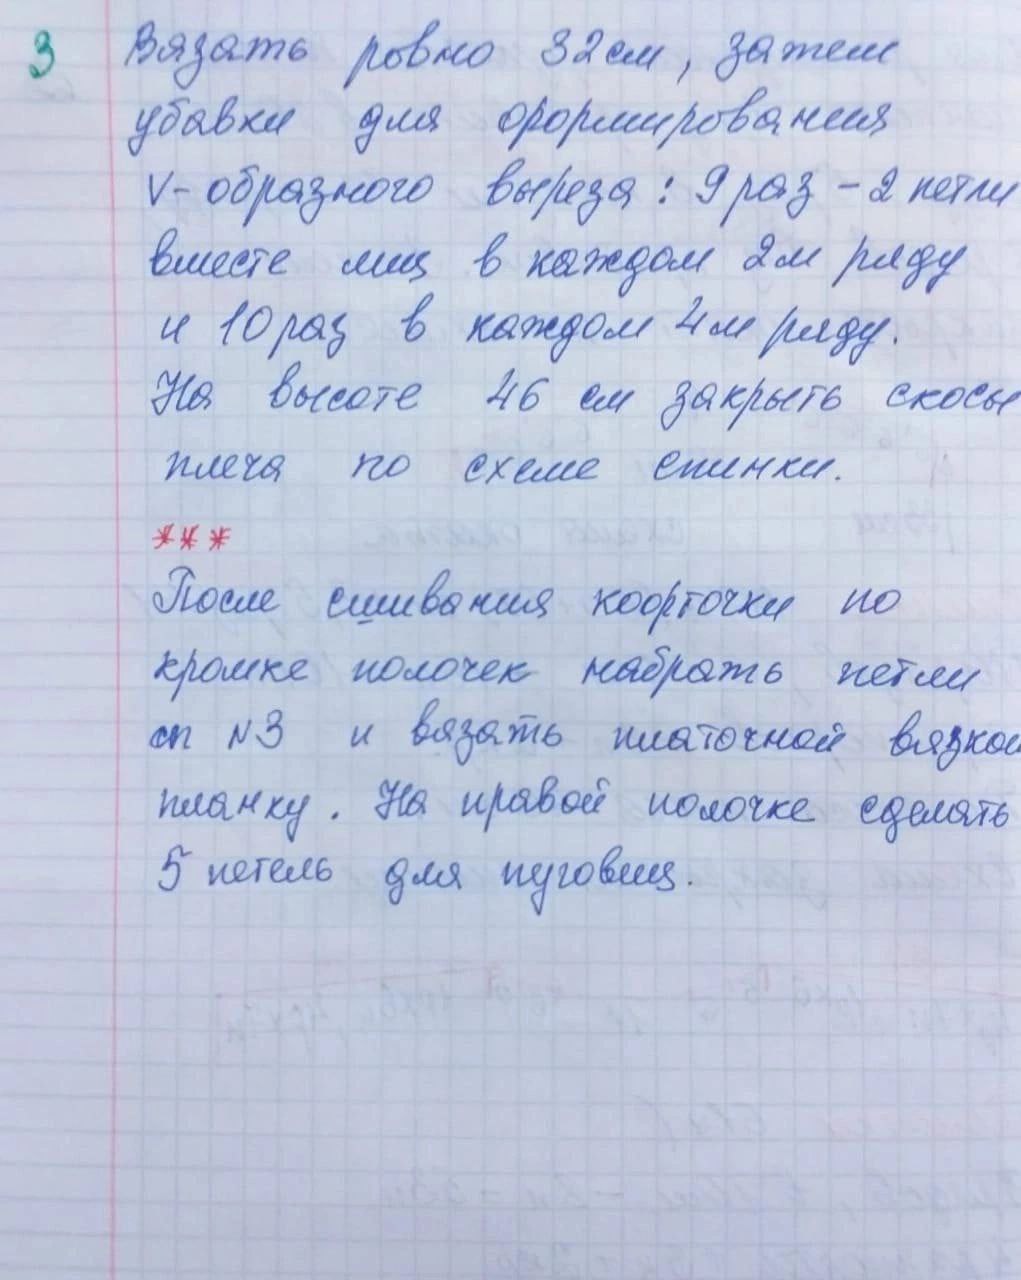 3 Вязать ровно 32 см, затем
убавки для формирования
V-образного выреза: 9 раз - 2 петли
вместе лиц в каждом 2м ряду
и 10 раз в каждом 4м ряду.
На высоте 46 см закрыть скосы
плеча по схеме спинки.
***
После сшивания кофточки по
кромке полочек набрать петли
сп №3 и вязать платочной вязкой
планку. На правой полочке сделать
5 петель для пуговиц.